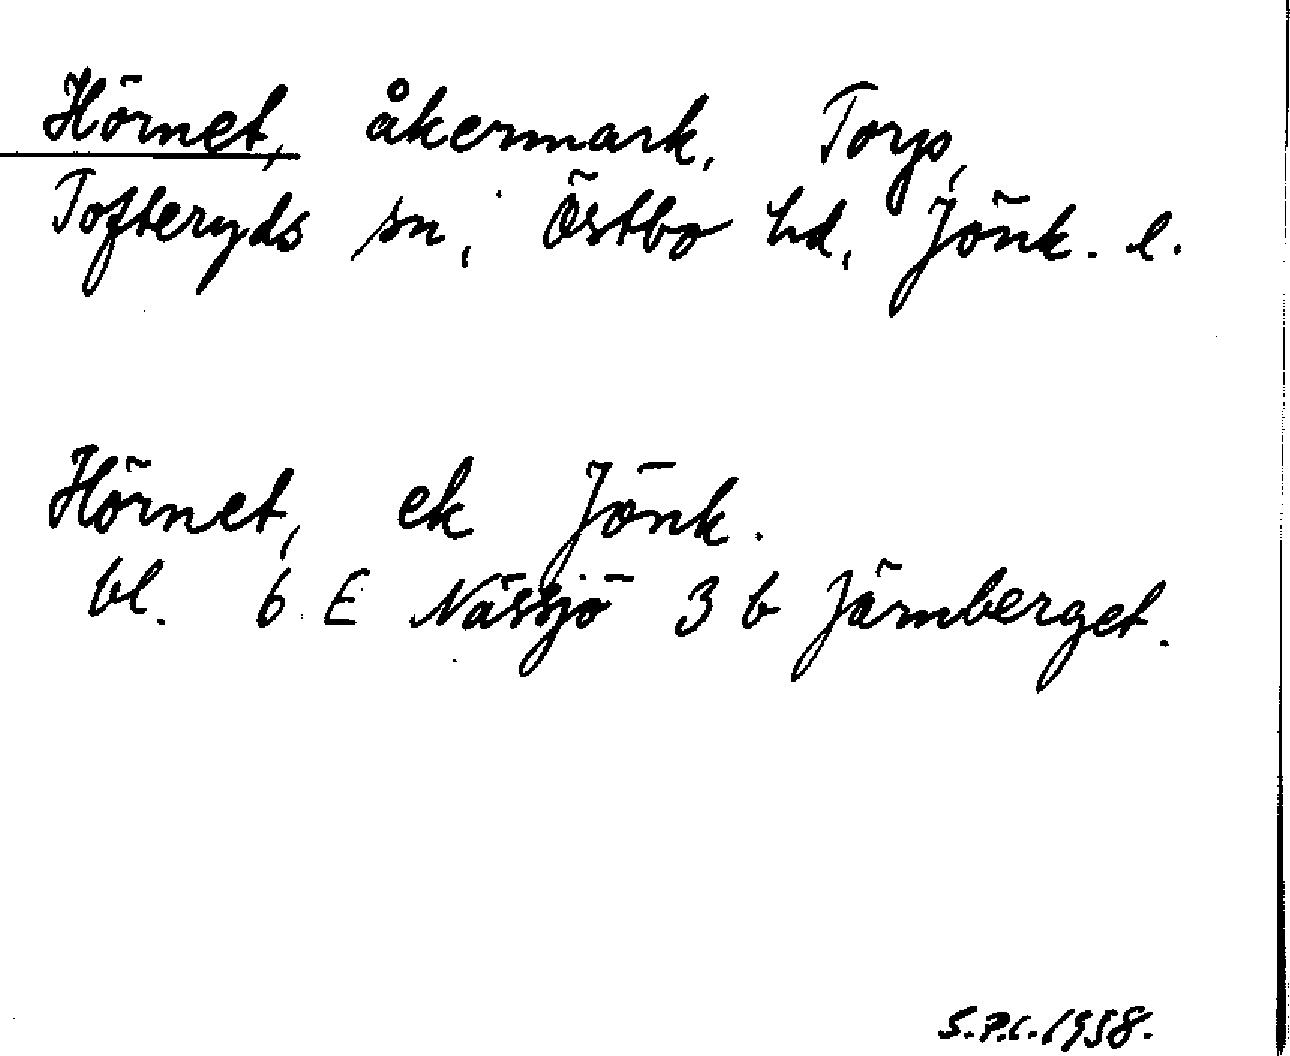 Hörnet, åkermark, Torp,
Tofteryds sn, Östbo hd, Jönk. l.
Hörnet, ek Jönk.
bl. 6 E Nässjö 3 b Järnberget.
S.P.C. 1958.